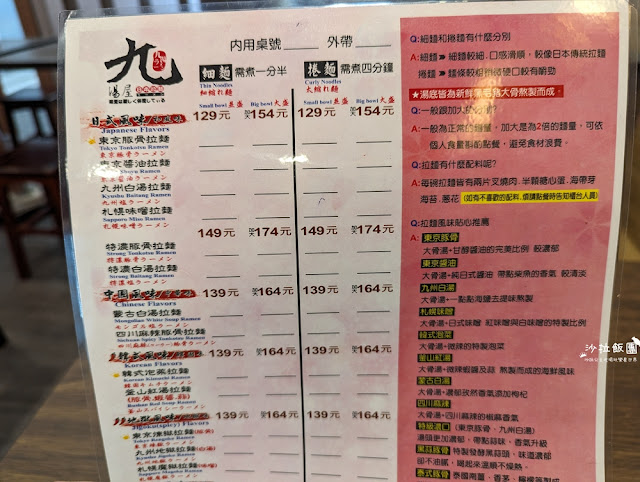 九
湯屋
内用桌號 外帶
細麵 需煮一分半
Thin Noodles
細縮れ麵
捲麵 需煮四分鐘
Curly Noodles
太縮れ麵
Small bowl 並盛 Big bowl 大盛 Small bowl 並盛 Big bowl 大盛
日式風味
Japanese Flavors
129元 154元 129元 154元
東京豚骨拉麵
Tokyo Tonkotsu Ramen
東京豚骨ラーメン
東京醬油拉麵
東京醤油ラーメン
九州白湯拉麵
Kyushu Baitang Ramen
九州塩ラーメン
札幌味噌拉麵
Sapporo Miso Ramen
札幌味噌ラーメン
149元 174元 149元 174元
特濃豚骨拉麵
Strong Tonkotsu Ramen
特濃豚骨ラーメン
特濃白湯拉麵
Strong Baitang Ramen
中國風味
Chinese Flavors
139元 164元 139元 164元
蒙古白湯拉麵
Mongolian White Soup Ramen
モンゴル塩ラーメン
四川麻辣豚骨拉麵
Sichuan Spicy Tonkotsu Ramen
韓式風味
Korean Flavors
139元 164元 139元 164元
韓式泡菜拉麵
Korean Kimuchi Ramen
韓国キムチラーメン
釜山紅湯拉麵
(豚骨蝦醬蒜)
Bushan Red Soup Ramen
釜山スパイシーラーメン
Jigoku(spicy) Flavors
139元 164元 139元 164元
東京煉獄拉麵
Tokyo Rengoku Ramen
九州地獄拉麵
Kyushu Jigoku Ramen
九州地獄ラーメン
札幌魔獄拉麵
Sapporo Magoku Ramen
Q:細麵和捲麵有什麼分別
A:細麵 細麵較細.口感滑順，較像日本傳統拉麵
捲麵 麵條較粗
★湯底皆為新鮮
大骨熬製而成.
Q:一般跟加大
A:一般為正常的麵量，加大是為2倍的麵量，可依
個人食量斟酌點餐，避免食材浪費.
Q:拉麵有什麼配料呢?
A:每碗拉麵皆有兩片叉燒肉.半顆糖心蛋.海帶芽
海苔.蔥花 (如有不喜歡的配料.煩請點餐時告知櫃台人員)
Q:拉麵風味貼心推薦
A: 東京豚骨
大骨湯+甘醇醬油的完美比例 較濃郁
東京醬油
大骨湯+純日式醬油 帶點柴魚的香氣 較清淡
九州白湯
大骨湯+一點點海鹽去提味熬製
札幌味噌
大骨湯+日式味噌 紅味噌與白味噌的特製比例
韓式泡菜
大骨湯+微辣的特製泡菜
釜山紅湯
大骨湯+微辣蝦醬及蒜 熬製而成的海鮮風味
蒙古白湯
大骨湯+濃郁孜然香氣添加枸杞
四川麻辣
大骨湯+四川麻辣的椒麻香氣
特級濃口 (東京豚骨、九州白湯)
湯頭更加濃郁、帶點蒜味，香氣升級
黑蒜豚骨 特製發酵黑蒜頭，味道濃郁
卻不油膩，喝起來溫順不燥熱.
泰式豚骨 泰國南薑、香茅、檸檬等製成
沙拉飯團